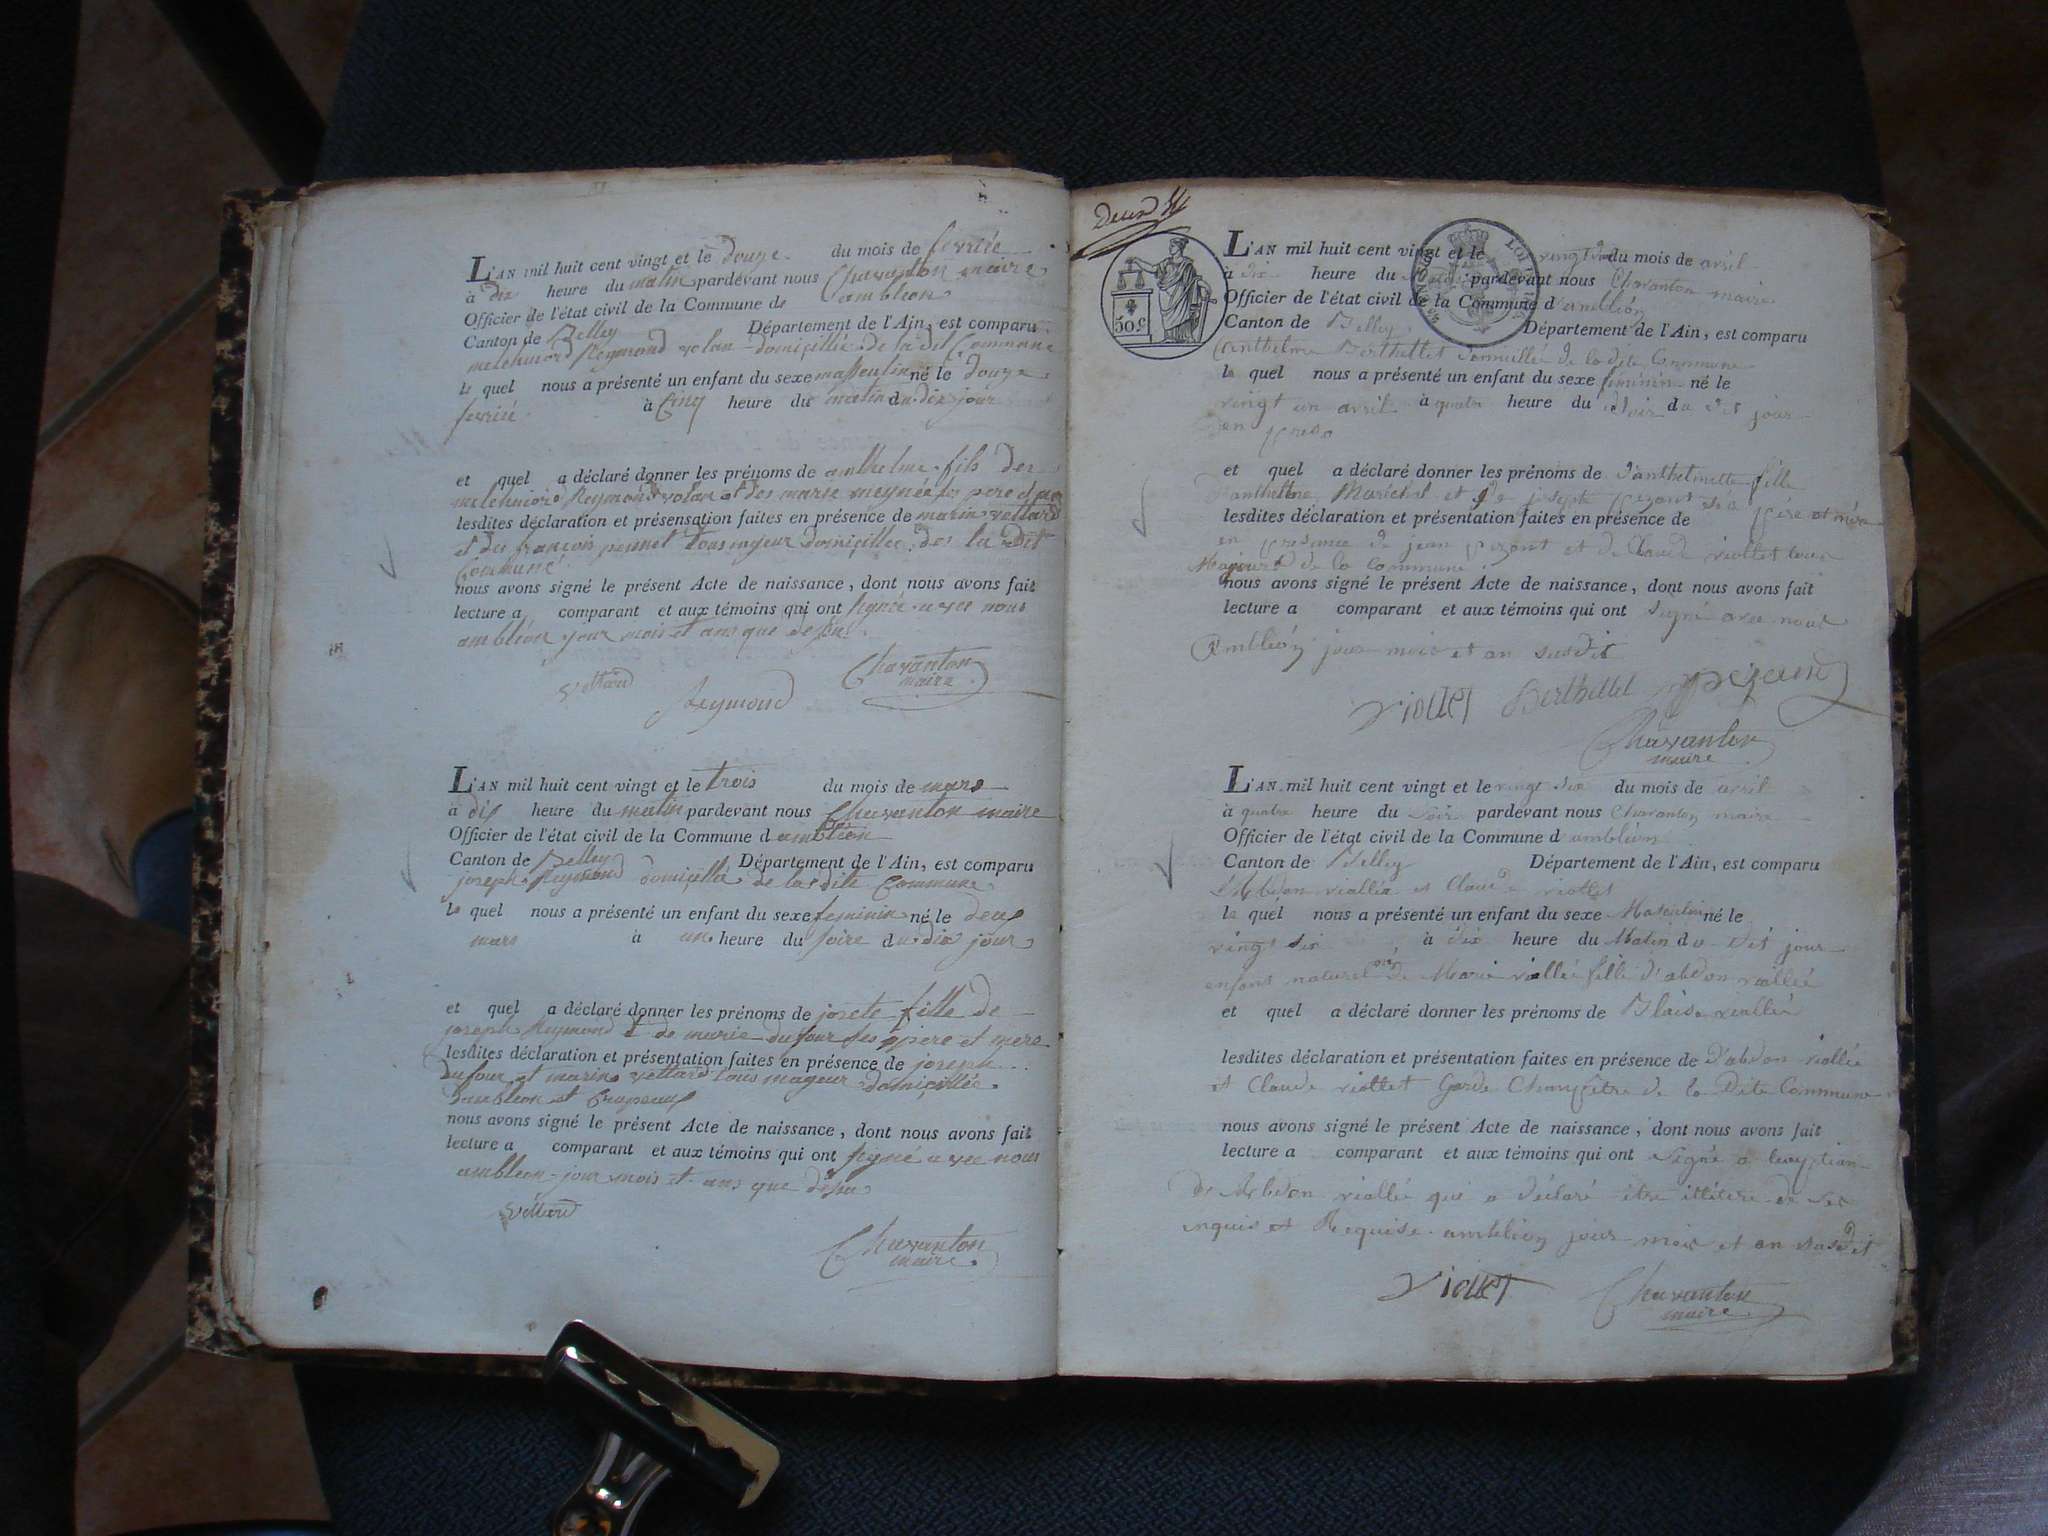 L'AN mil huit cent vingt et le douze du mois de fevrièe
à dix heure du matin pardevant nous Chavanton maire
Officier de l'état civil de la Commune de ambléon
Canton de Belley Département de l'Ain, est comparu
melchiord Reymond volan domicillié de la dit Commune
le quel nous a présenté un enfant du sexe masseulin né le douze
fevrièe à Cinq heure du matin du dix jour
et quel a déclaré donner les prénoms de anthelme fils de
melchiord Reymond volan et de marie meynée ses pere et mere
lesdites déclaration et présensation faites en présence de marin vettard
et de françois pennet tous majeur domicillée de la dit
Commune
nous avons signé le présent Acte de naissance, dont nous avons fait
lecture a comparant et aux témoins qui ont signée avec nous
ambléon jour mois et ans que desu
Vettard Reymond Chavanton
maire
L'AN mil huit cent vingt et le trois du mois de mars
à dix heure du matin pardevant nous Chavanton maire
Officier de l'état civil de la Commune d ambléon
Canton de Belley Département de l'Ain, est comparu
joseph Reymond domicillié de la dite Commune
le quel nous a présenté un enfant du sexe feminin né le deux
mars à un heure du soire du dix jour
et quel a déclaré donner les prénoms de josete fille de
joseph Reymond et de marie dufour ses pere et mere
lesdites déclaration et présentation faites en présence de joseph
dufour et marin vettard tous mageur domicillée
dambléon et
nous avons signé le présent Acte de naissance, dont nous avons fait
lecture a comparant et aux témoins qui ont signé avec nous
ambléon jour mois et ans que desu
Vettard
Chavanton
maire
50 c
L'AN mil huit cent vingt et le vingt du mois de avril
à dix heure du pardevant nous Chavanton maire
Officier de l'état civil de la Commune d ambléon
Canton de Belley Département de l'Ain, est comparu
anthelme Berthellet de la dite Commune
le quel nous a présenté un enfant du sexe féminin né le
vingt un avril à quatre heure du soir du dit jour
et quel a déclaré donner les prénoms de d'anthelmette fille
d'anthelme Maréchal et de josephe pezant ses père et mère
lesdites déclaration et présentation faites en présence de
en presance de jean pezant et de Claude viollet tous
Majeurs de la Commune
nous avons signé le présent Acte de naissance, dont nous avons fait
lecture a comparant et aux témoins qui ont signé avec nous
Ambléon jour mois et an susdit
Viollet Berthellet pezant
Chavanton
maire
L'AN mil huit cent vingt et le vingt six du mois de avril
à quatre heure du soir pardevant nous Chavanton maire
Officier de l'état civil de la Commune d ambléon
Canton de Belley Département de l'Ain, est comparu
Abdon viallié et Claude viollet
le quel nous a présenté un enfant du sexe Masculin né le
vingt six à dix heure du Matin du dit jour
enfant naturel de Marie viallié fille d'abdon viallié
et quel a déclaré donner les prénoms de Blaise viallié
lesdites déclaration et présentation faites en présence de d'abdon viallié
et Claude viollet Garde Champêtre de la Dite Commune
nous avons signé le présent Acte de naissance, dont nous avons fait
lecture a comparant et aux témoins qui ont signé a
de Abdon viallié qui a déclaré être illétere de ce
enquis et Requise ambléon jour mois et an susdit
Viollet Chavanton
maire